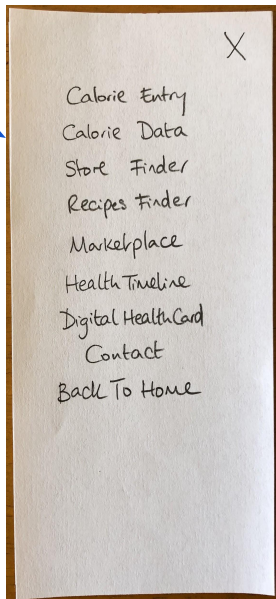 X
Calorie Entry
Calorie Data
Store Finder
Recipes Finder
Marketplace
Health Timeline
Digital Health Card
Contact
Back To Home